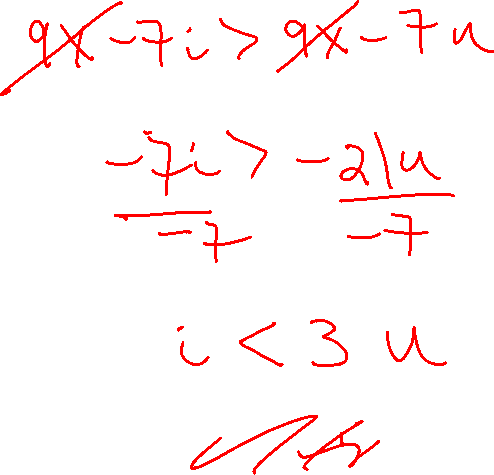 9x - 7i > 9x - 7u
-7i > -21u
-7 -7
i < 3 u